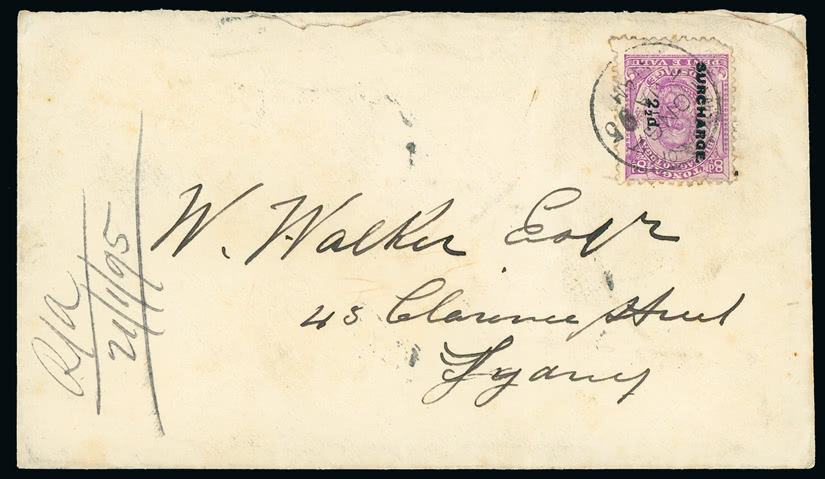 SURCHARGE.
2½d.
TONGA
8d
W. Walker Esqr
45 Clarence Street
Sydney
R/a
21/1/95